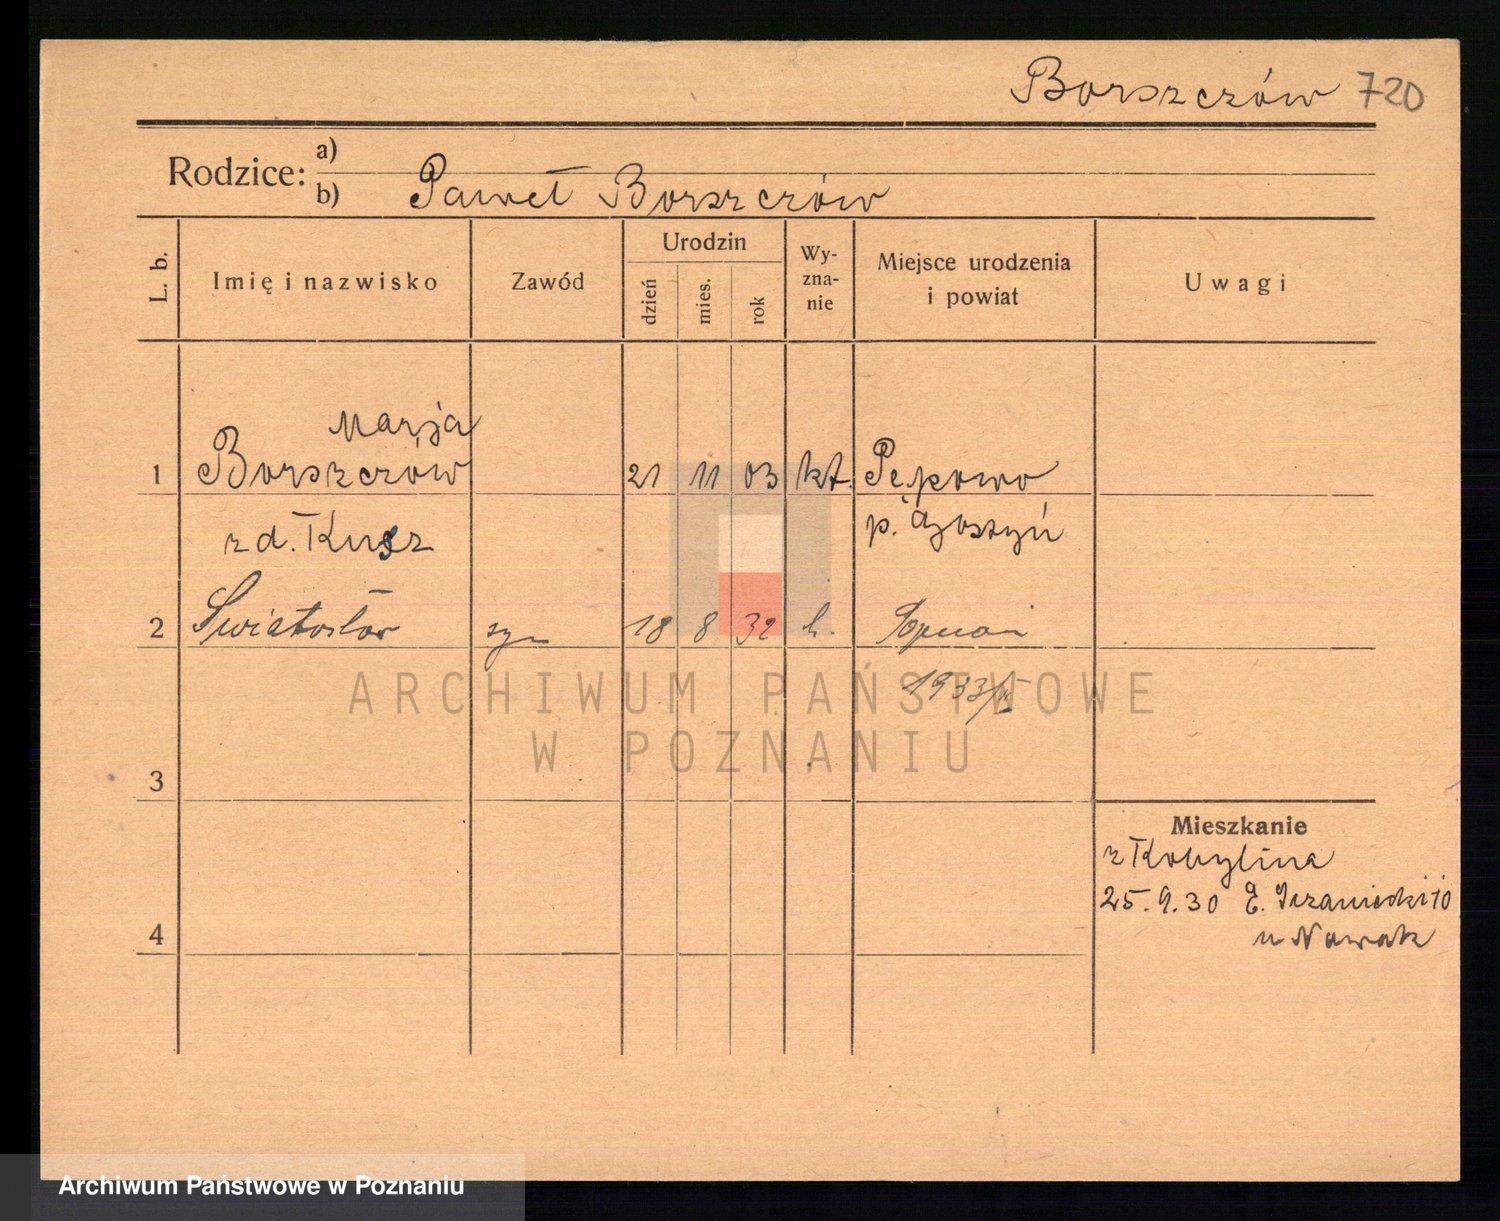 Borszczów 720
Rodzice: a)
b) Paweł Borszczów
L. b.
Imię i nazwisko
Zawód
Urodzin
dzień
mies.
rok
Wy-
zna-
nie
Miejsce urodzenia
i powiat
Uwagi
Marja
1 Borszczów 21 11 03 kt. Pępowo
zd. Kusz p. Gostyń
2 Swiatosław syn 18 8 32 k. Poznań
1933/IV
3
4
Mieszkanie
z Kobylina
25.9.30
u Nowak
ARCHIWUM PAŃSTWOWE
W POZNANIU
Archiwum Państwowe w Poznaniu